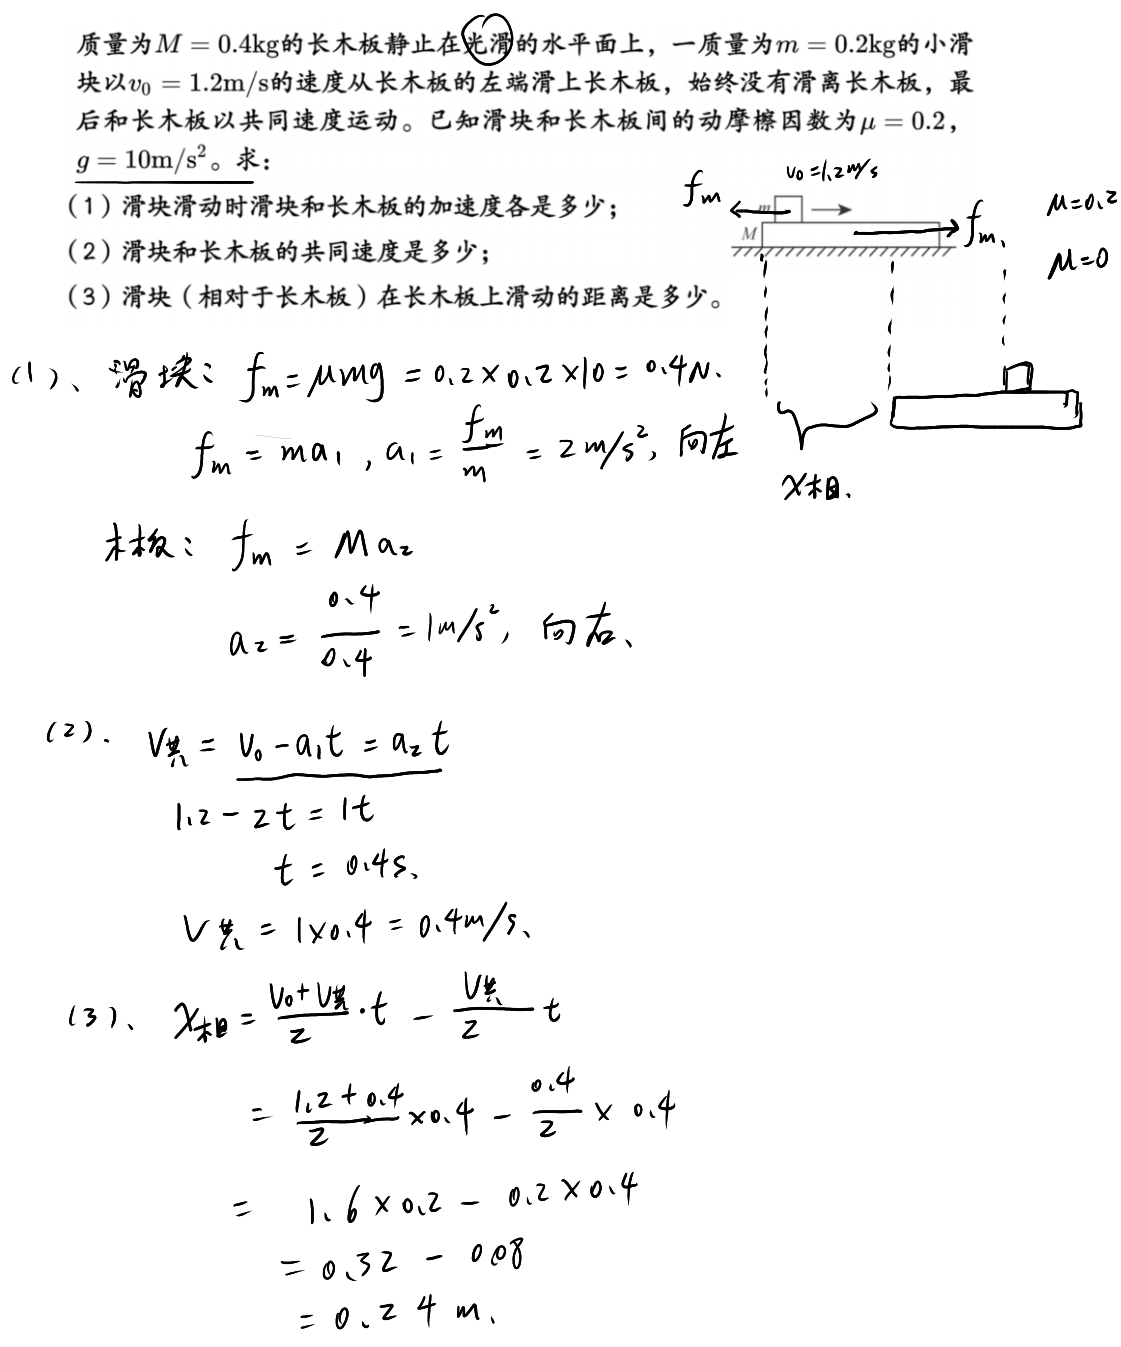 质量为M = 0.4kg的长木板静止在光滑的水平面上，一质量为m = 0.2kg的小滑
块以v₀ = 1.2m/s的速度从长木板的左端滑上长木板，始终没有滑离长木板，最
后和长木板以共同速度运动。已知滑块和长木板间的动摩擦因数为μ = 0.2，
g = 10m/s²。求：
（1）滑块滑动时滑块和长木板的加速度各是多少；
（2）滑块和长木板的共同速度是多少；
（3）滑块（相对于长木板）在长木板上滑动的距离是多少。
v₀=1.2m/s
fm
m
M
fm、
μ=0.2
μ=0
x相.
(1)、滑块： fm = μmg = 0.2×0.2×10 = 0.4N.
fm = ma₁ , a₁ = fm/m = 2m/s², 向左
木板： fm = Ma₂
a₂ = 0.4/0.4 = 1m/s², 向右、
(2). V共 = v₀ - a₁t = a₂t
1.2 - 2t = 1t
t = 0.4s、
V共 = 1×0.4 = 0.4m/s、
(3)、 x相 = (v₀+V共)/2 · t - V共/2 t
= (1.2+0.4)/2 ×0.4 - 0.4/2 × 0.4
= 1.6×0.2 - 0.2×0.4
= 0.32 - 0.08
= 0.24m、